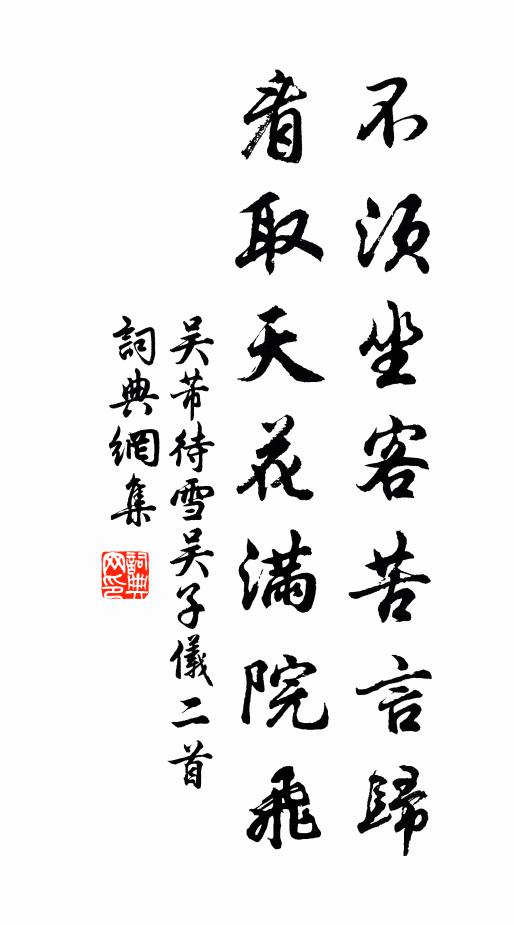 不須坐客苦言歸
看取天花滿院飛
吳芾待雪吳子儀二首
詞典網集
詞典網印